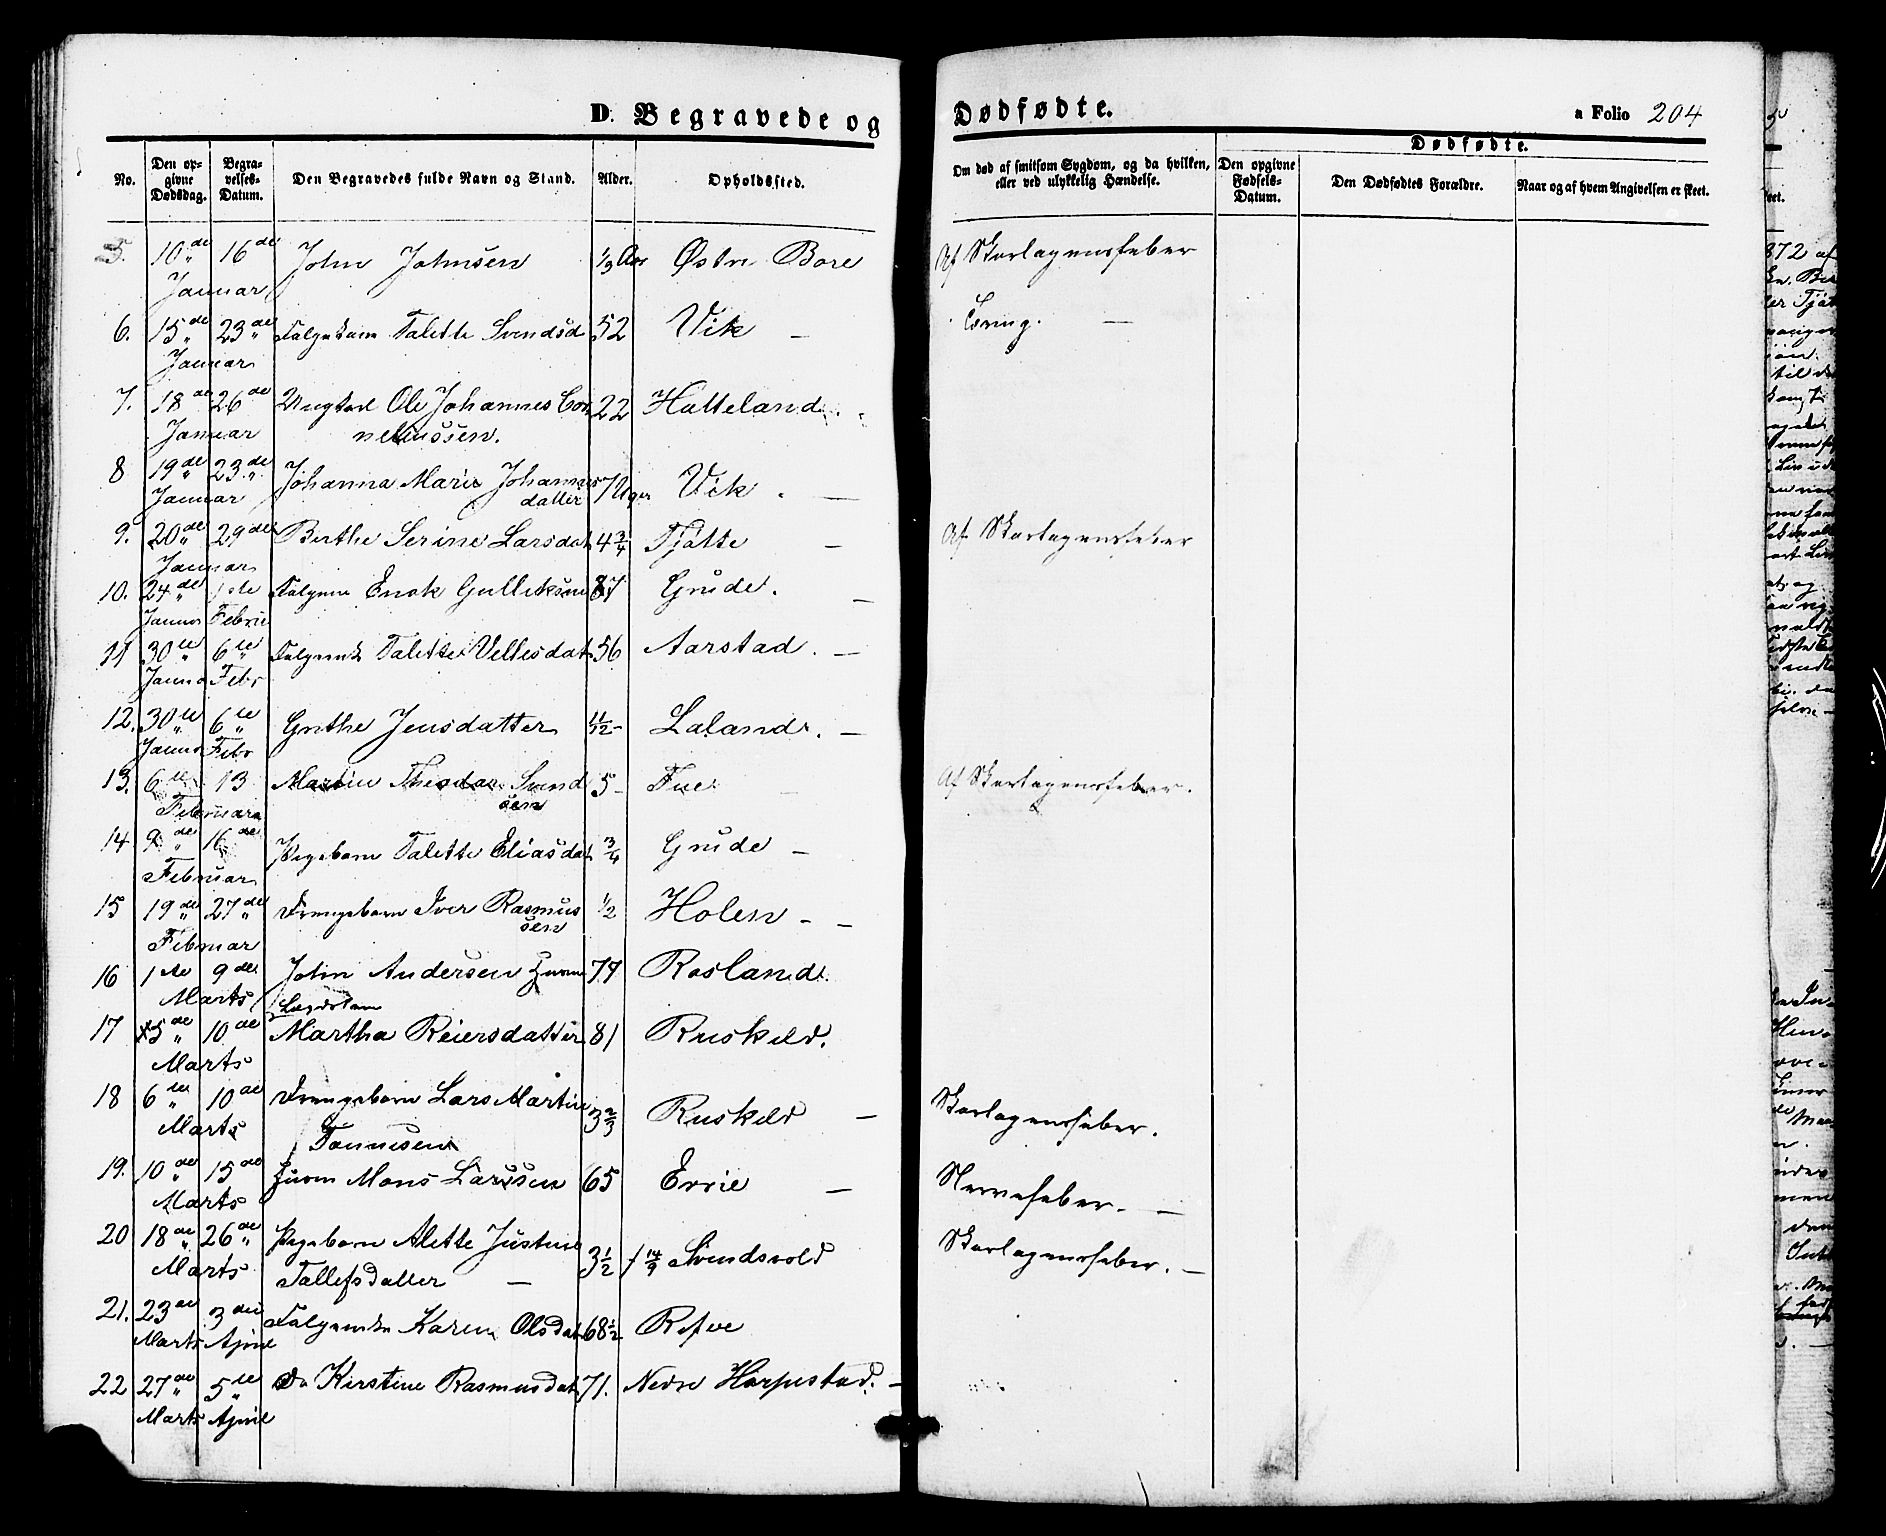 D. Begravede og Dødfødte.
a Folio 204
No.
Den opgivne Dødsdag.
Begravelses-Datum.
Den Begravedes fulde Navn og Stand.
Alder.
Opholdssted.
Om død af smitsom Sygdom, og da hvilken, eller ved ulykkelig Hændelse.
Dødfødte.
Den opgivne Fødsels-Datum.
Den Dødfødtes Forældre.
Naar og af hvem Angivelsen er skeet.
5. 10de 16de John Johnsen 1/3 Aar Østre Bore Af Skarlagensfeber
Januar
6. 15de 23de Talette Svendsd 52 Vik —
Januar
7. 18de 26de Ungkarl Ole Johannes Cor 22 Hatteland
Januar neliussen.
8 19de 23de Johanna Marie Johannes 7 Uger Vik —
Januar datter
9. 20de 29de Berthe Serine Larsdat 4 3/4 Tjøtte — Af Skarlagensfeber
Januar
10. 24de 1ste Enok Gulliksen 87 Grude. —
Januar Februar
11 30te 6te Talette Vellesdat 56 Aarstad. —
Januar Febr
12. 30te 6te Grethe Jensdatter 11/12 Laland. —
Januar Febr
13. 6te 13 Martin Theodor Svend 5 Tue — Af Skarlagensfeber.
Februar sen
14 9de 16de Pigebarn Talette Eliasdat 3/4 Grude —
Februar
15 19de 27de Drengebarn Iver Rasmus 1/2 Holen —
Februar sen
16 1ste 9de John Andersen 77 Rosland.
Marts Lægdslem
17 5de 10de Martha Reiersdatter 81 Ruskeld.
Marts
18 6te 10de Drengebarn Lars Martin 3 2/3 Ruskeld — Skarlagensfeber.
Marts Tønnesen
19. 10de 15de Mons Larssen 65 Errie — Nervefeber. —
Marts
20 18de 26de Pigebarn Alette Justine 3 1/2 Svendsvold Skarlagensfeber. —
Marts Tallefsdatter —
21. 23de 3die Karen Olsdat 68 1/2 Refve
Marts April
22 27de 5te Do Kirstine Rasmusdat 71. Nedre Horpestad. —
Marts April